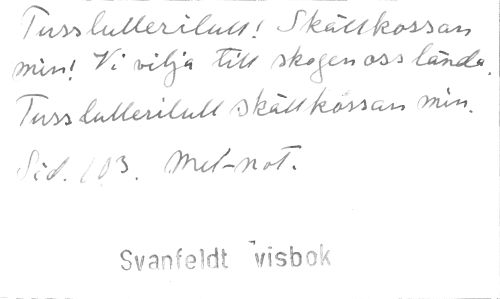 Tusslullerilull! Skällkossan
min! Vi vilja till skogen oss lända.
Tusslullerilull skällkossan min.
Sid. 103. Mel-not.
Svanfeldt visbok